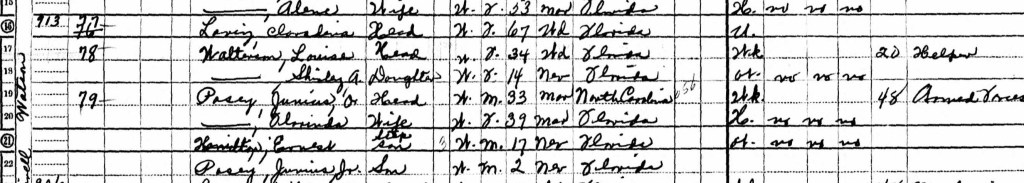 ——, Alene Wife W. F. 53 Mar Florida H. no no no
16 913 77 76 Head W. F. 67 Wd Florida U.
17 78 Louise Head W. F. 34 Wd Florida Wk 20 Helper
18 ——, Shirley A. Daughter W. F. 14 Nev Florida Ot. no no no
19 79 Posey, Junius O. Head W. M. 33 Mar North Carolina 056 Wk. 48 Armed Forces
20 ——, Wife W. F. 39 Mar Florida H. no no no
21 Hamilton, Ernest Step son W. M. 17 Nev Florida ot. no no no
22 Posey, Junius Jr. Son W. M. 2 Nev Florida